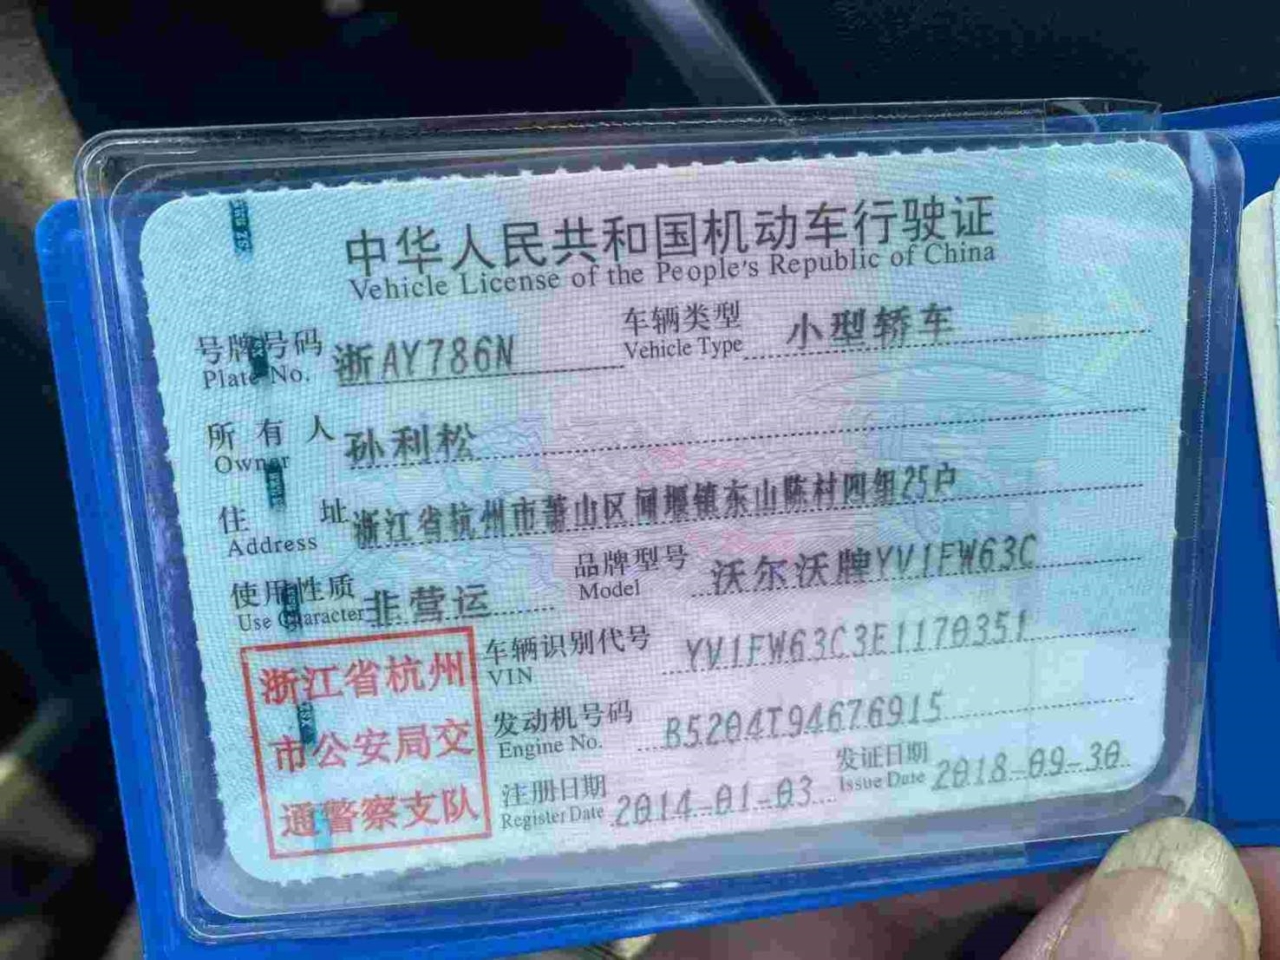 中华人民共和国机动车行驶证
Vehicle License of the People's Republic of China
号牌号码 浙AY786N 车辆类型 小型轿车
Plate No. Vehicle Type
所有人 孙利松
Owner
住址 浙江省杭州市萧山区闻堰镇东山陈村四组25户
Address
使用性质 非营运 品牌型号 沃尔沃牌YV1FW63C
Use Character Model
车辆识别代号 YV1FW63C3E1170351
VIN
发动机号码 B5204T94676915
Engine No.
注册日期 2014-01-03 发证日期 2018-09-30
Register Date Issue Date
浙江省杭州
市公安局交
通警察支队